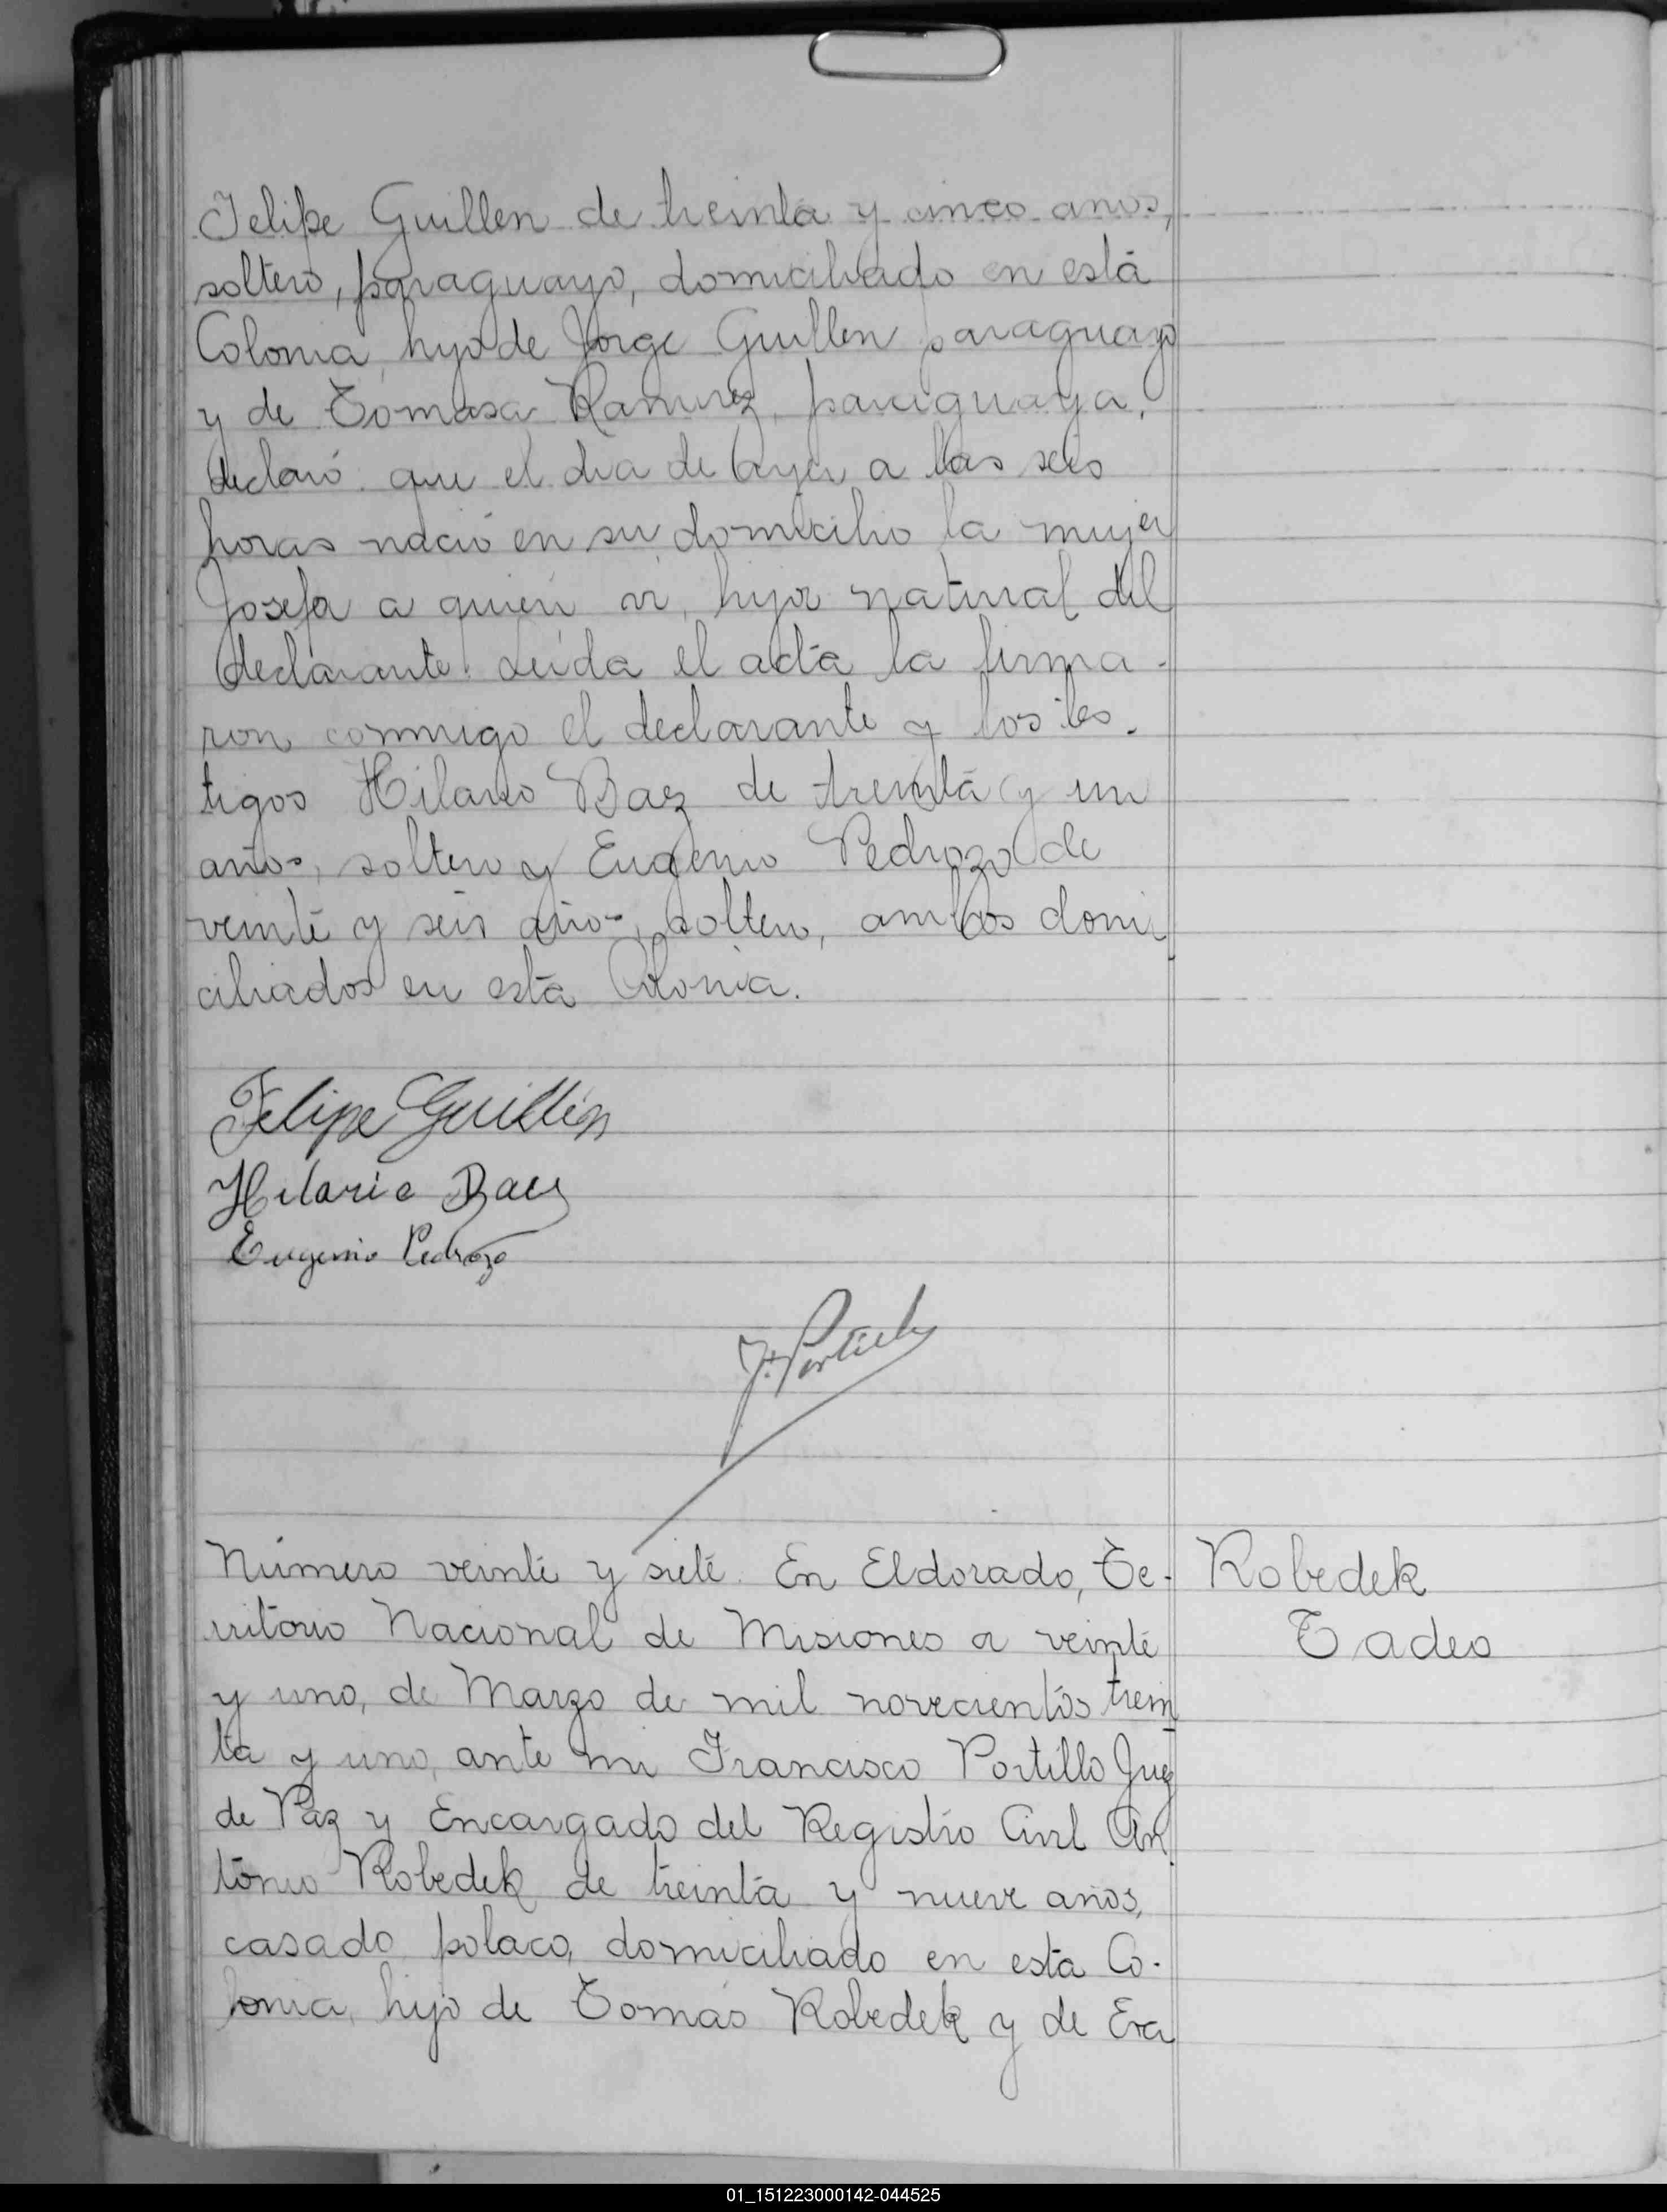 Felipe Guillen de treinta y cinco anos,
soltero, paraguayo, domiciliado en está
Colonia, hijo de Jorge Guillen paraguayo
y de Tomasa Ramirez, paraguaya,
declaró: que el dia de ayer a las seis
horas nació en su domicilio la mujer
Josefa a quien vi, hija natural del
declarante. Leida el acta la firma-
ron conmigo el declarante y los tes-
tigos Hilario Baez de treinta y un
años, soltero y Eugenio Pedrozo de
veinte y seis años, soltero, ambos domi-
ciliados en esta Colonia.
Felipe Guillén
Hilario Baez
Eugenio Pedrozo
F. Portillo
Número veinte y siete. En Eldorado, Te-
rritorio Nacional de Misiones a veinte
y uno, de Marzo de mil novecientos trein-
ta y uno, ante mi Francisco Portillo Juez
de Paz y Encargado del Registro Civil An-
tonio Robedek de treinta y nueve años,
casado, polaco, domiciliado en esta Co-
lonia, hijo de Tomás Robedek y de Eva
Robedek
Tadeo
01_151223000142-044525